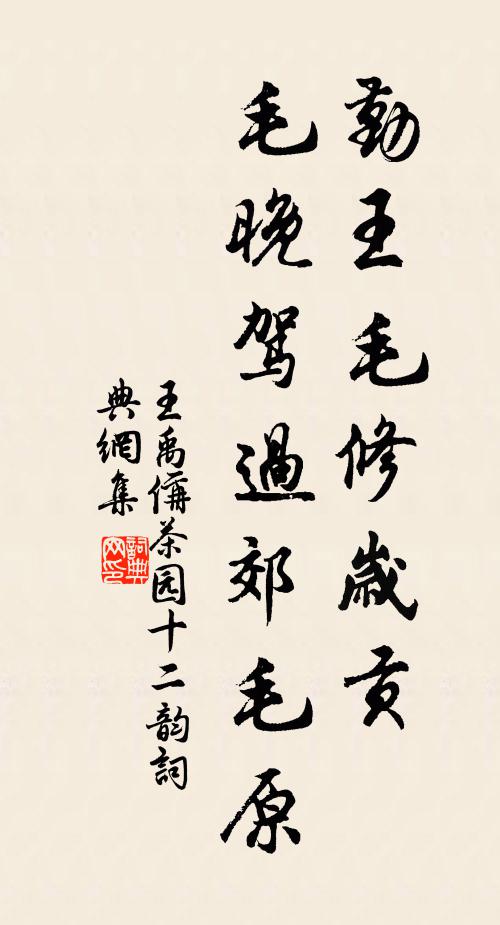 勤王毛修歲貢
毛晚駕過郊毛原
王禹偁茶园十二韵詞
典網集
詞典
网印